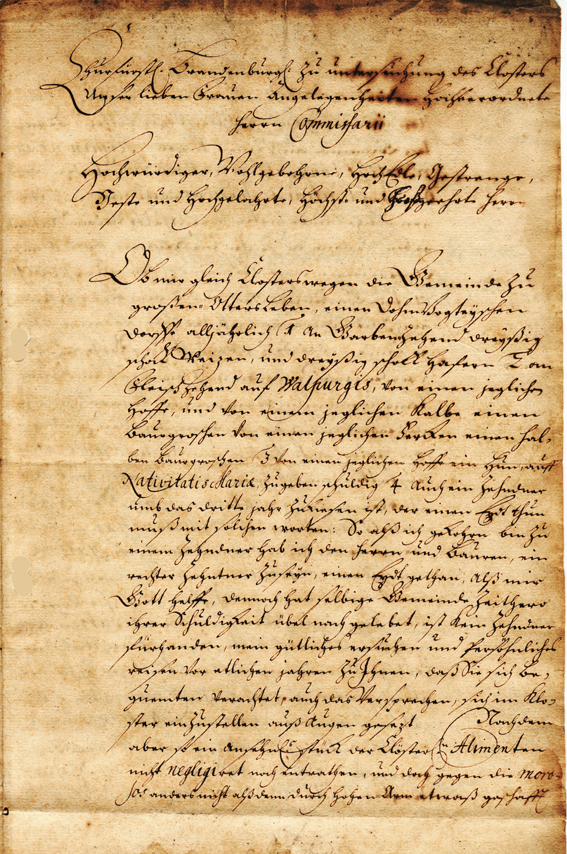 Churfürstl. Brandenburgl. Zu untersuchung des Closters
Unser lieben Frauen angelegenheiten Hochverordnete
Herrn Commissarii
Hochwürdiger, Wohlgebohrne, HochEdle, Gestrenge,
Veste und Hochgelahrte, Höchst- und Hochgeehrte Herrn
Ob mir gleich Closters wegen die Gemeinde zu
großen Ottersleben, einen DohmVogteyschen
Dorffe alljährlich 1 An Garbenzehend dreyßig
schock Weizen, und dreyßig schock Hafern 2. am
Fleischzehend auf Walpurgis, von einen jeglichen
Hoffe, und von einem jeglichen Kalbe einen
Baurgroschen von einen jeglichen Fercken einen hal-
ben Baurgroschen 3 von einen jeglichen Hoffe ein Hun, auff
Nativitatis Mariæ zugeben schuldig 4 Auch ein Zehndner
umb das dritte jahr zukiesen ist, der einen Eydt thun
muß mit solchen worten: So alß ich gekohrn bin zu
einem Zehndner hab ich den Herrn und Bauren, ein
rechter Zehntner zuseyn, einen Eydt gethan, alß mir
Gott helffe, dennoch hat selbige Gemeinde zeithero
ihrer Schuldigkeit übel nachgelebet, ist kein Zehndner
fürhanden, mein gütliches ersuchen und Persöhnliches
reisen vor etlichen jahren zu Ihnen, daß Sie sich be-
quemten verachtet, auch das Versprechen, sich im Klo-
ster einzustellen auß Augen gesezt Nachdem
aber ein stück der Clöster Alimenten
nicht negligiret noch entrathen, und doch gegen die moro-
sos anders nicht alß denn durch hohen Arm etwaß geschafft